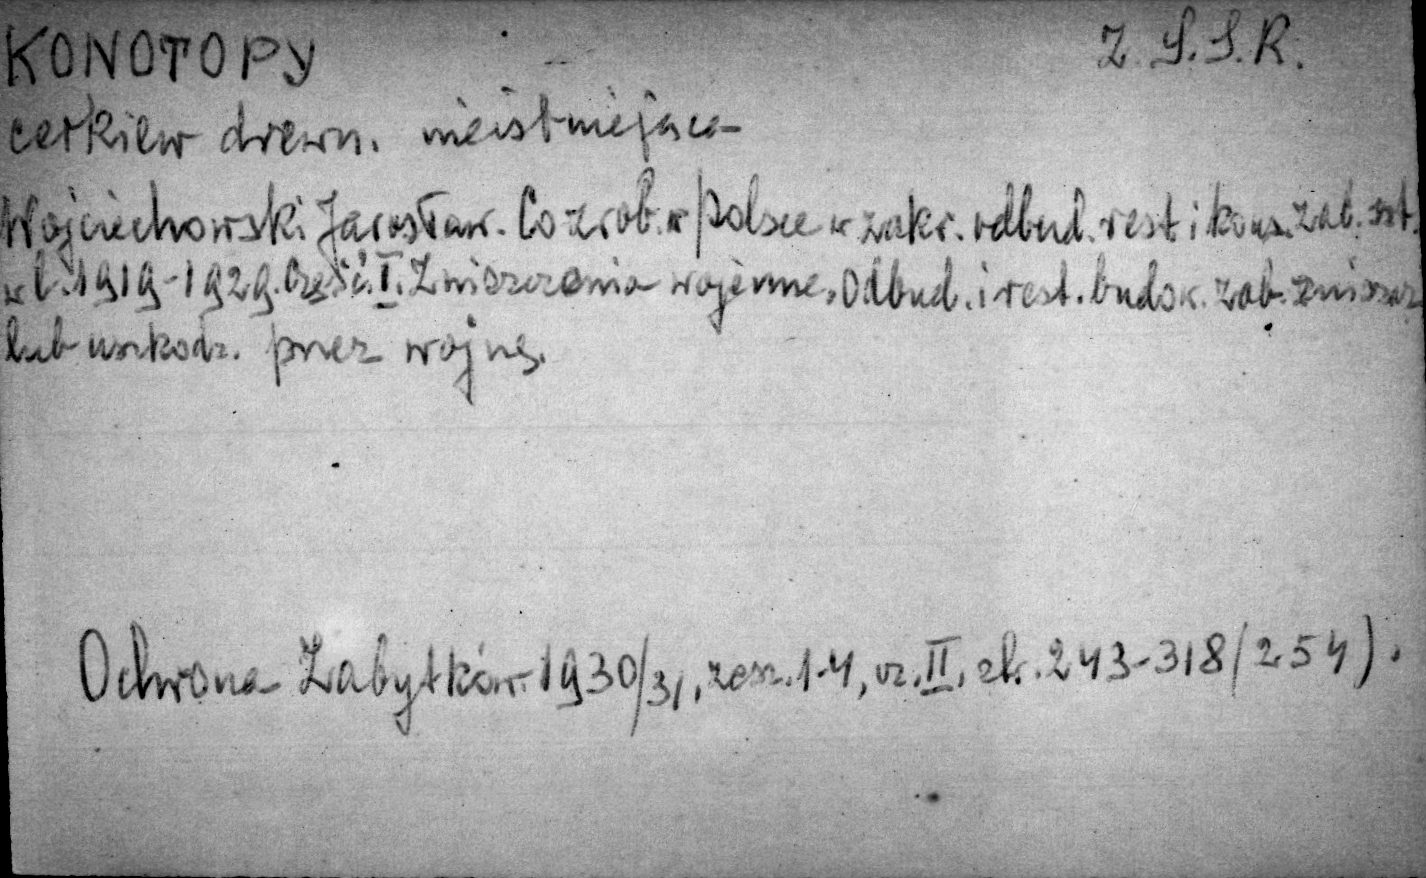 KONOTOPY Z.S.S.R.
cerkiew drewn. nieistniejąca
Wojciechowski Jarosław. Co zrob. w Polsce w zakr. odbud. rest i kons. zab. szt.
w l. 1919-1929. Część. I. Zniszczenia wojenne. Odbud. i rest. budow. zab. zniszcz.
lub uszkodz. przez wojnę.
Ochrona Zabytków 1930/31, zesz. 1-4, cz. II, str. 243-318 (254).